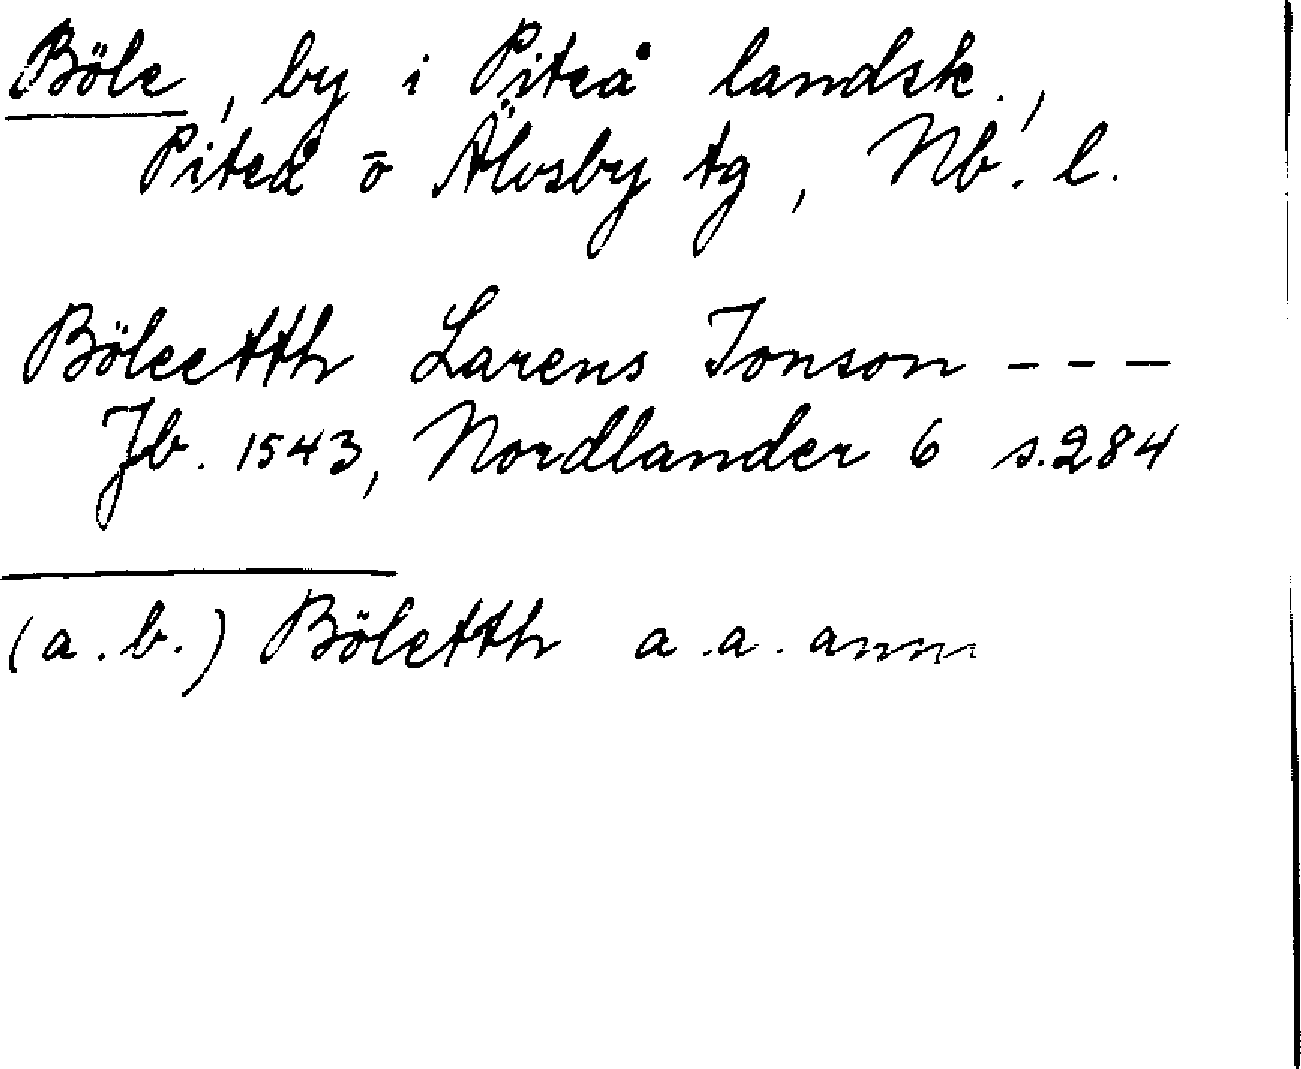 Böle, by i Piteå landsk.,
Piteå ō Älvsby tg, Nb. l.
Böleetth Larens Jonson - - -
Jb. 1543, Nordlander 6 s. 284
(a. b.) Böletth a. a. anm